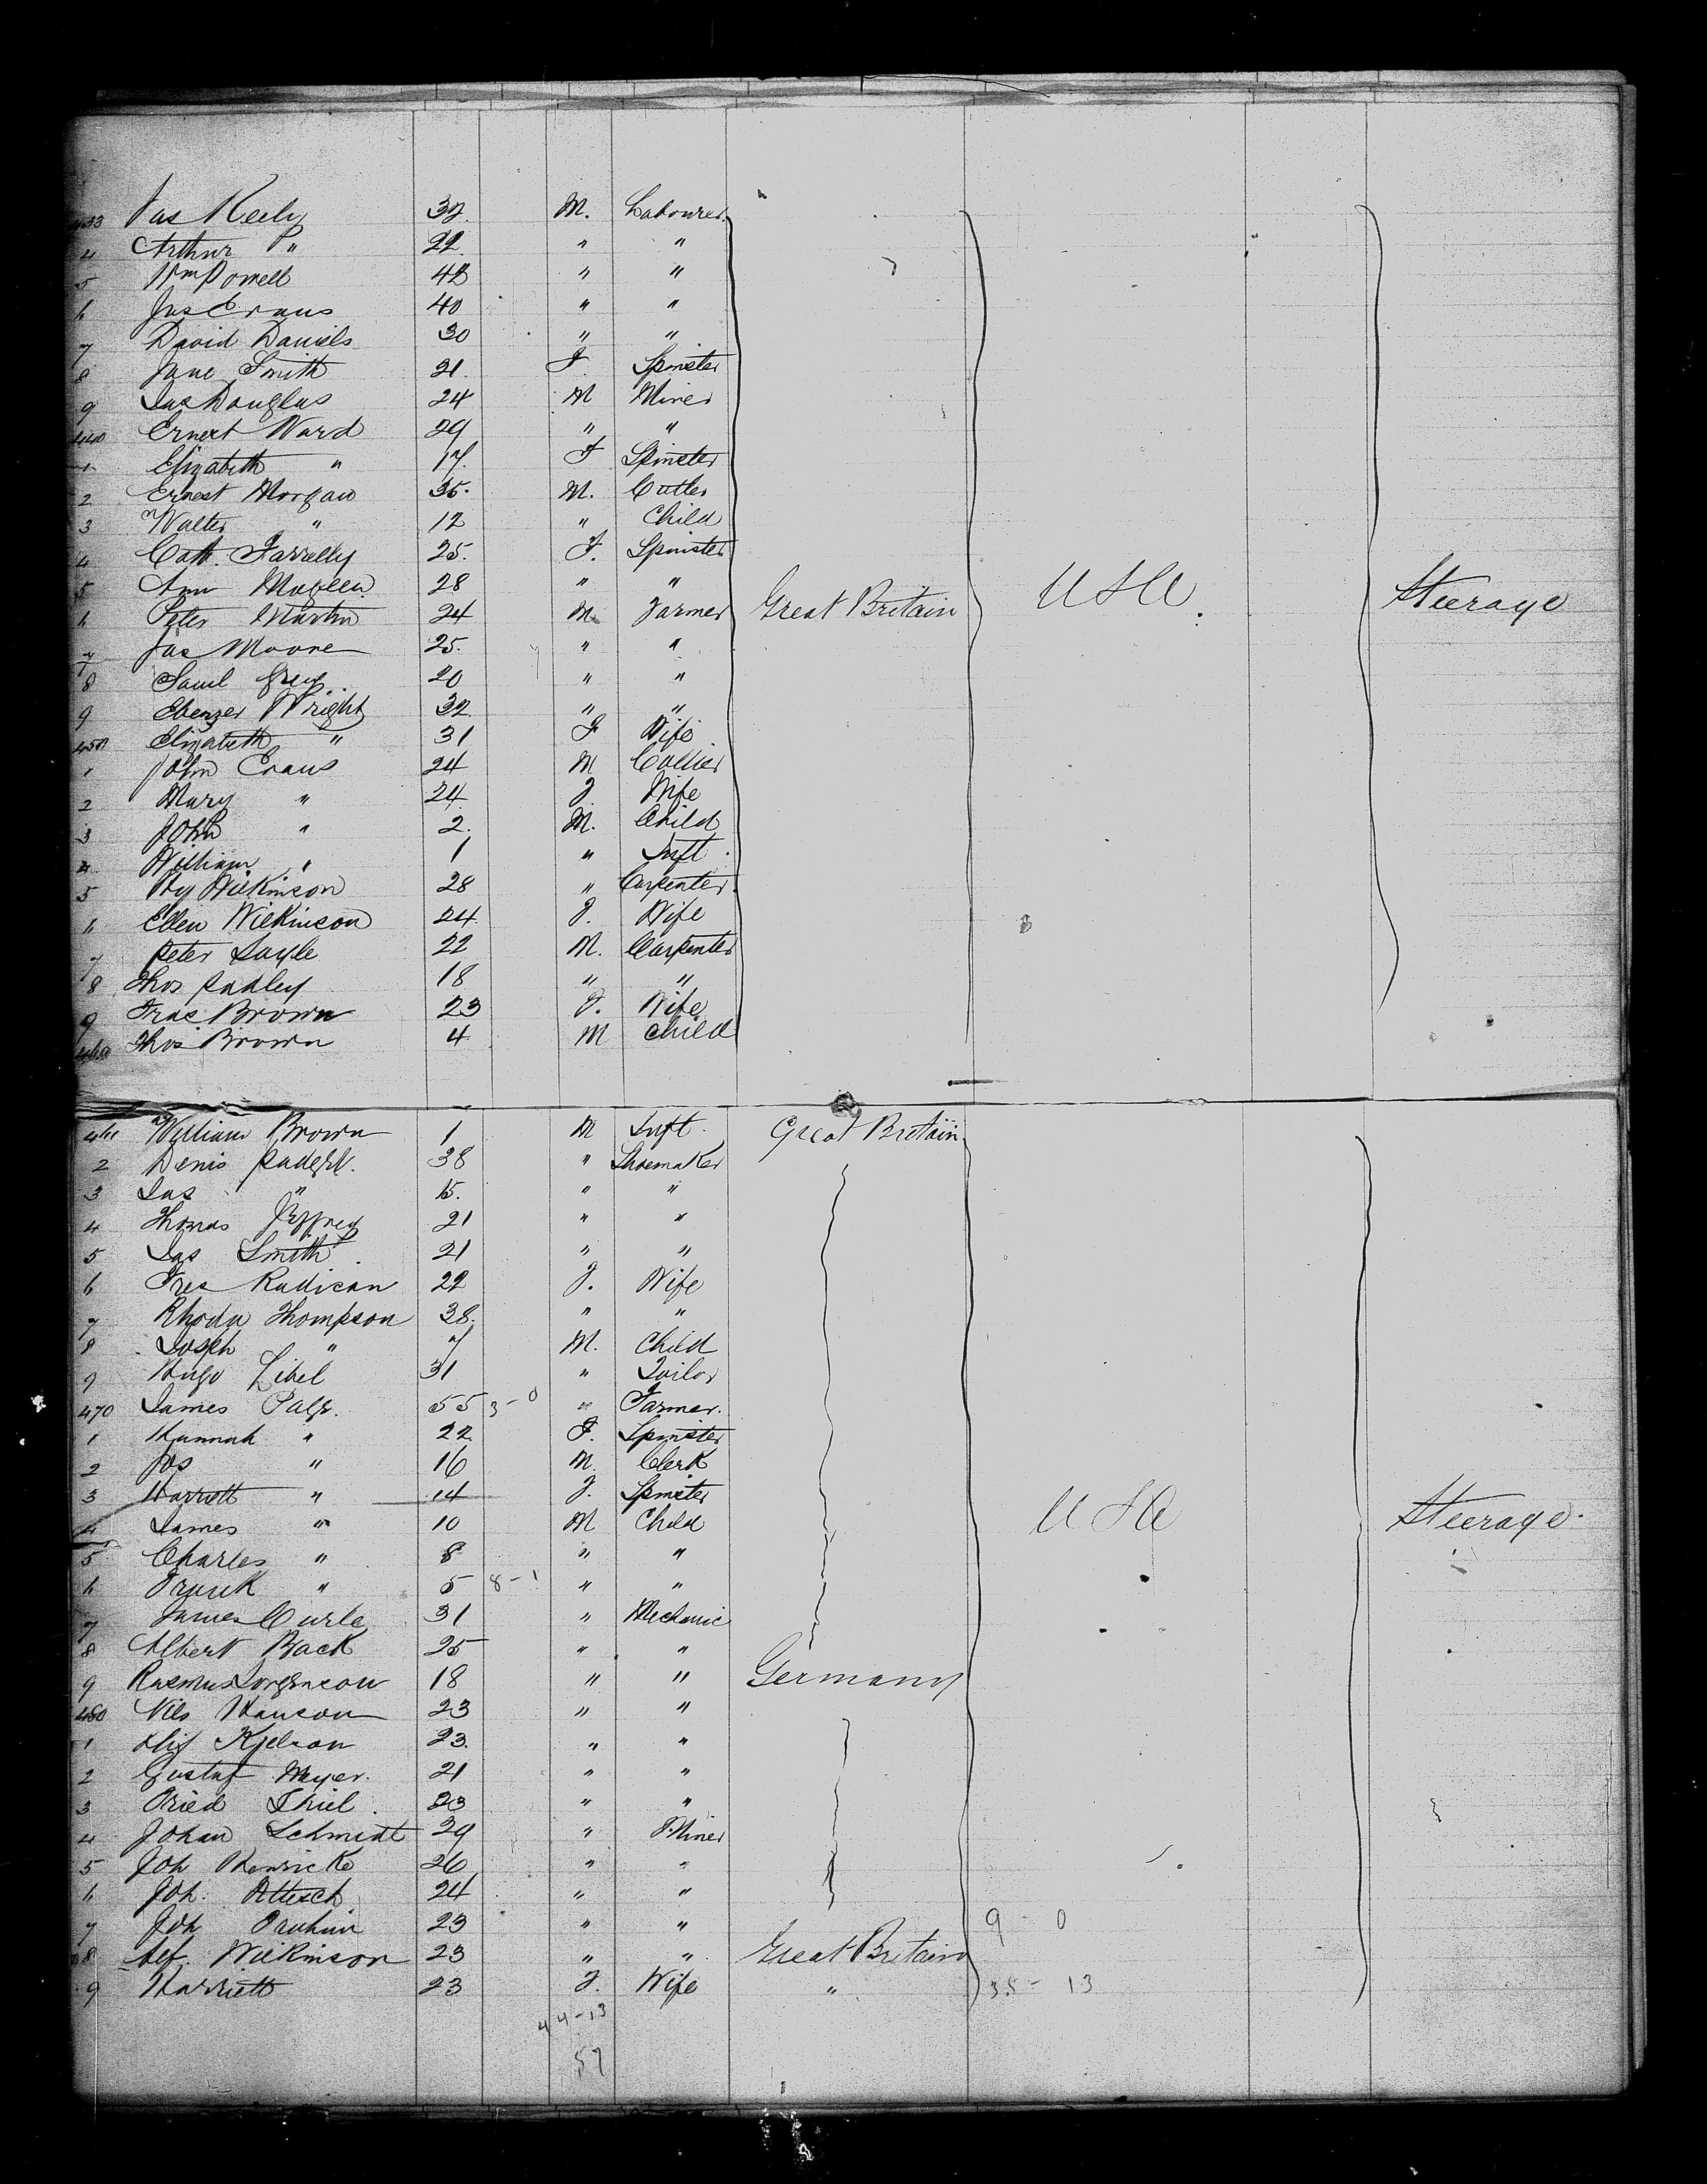 433 Jas Keely 32 M. Labourer
4 Arthur " 22 " "
5 Wm Powell 42 " "
6 Jas Evans 40 " "
7 David Daniels 30 " "
8 Jane Smith 21 F. Spinster
9 Jas Douglas 24 M Miner
440 Ernest Ward 29 " "
1 Elizabeth " 17 F Spinster
2 Ernest Morgan 35 M. Cutler
3 Walter " 12 " Child
4 Cath. Farrelly 25 F. Spinster
5 Ann 28 " "
6 Peter Martin 24 M. Farmer Great Britain USA. Steerage
7 Jas Moore 25 " "
8 Saml Grey 20 " "
9 Ebenzer Wright 32 " "
450 Elizabeth " 31 F Wife
1 John Evans 24 M Collier
2 Mary " 24 F. Wife
3 John " 2 M. Child
4 William " 1 " Inft
5 Hy Wilkinson 28 " Carpenter
6 Ellen Wilkinson 24 F. Wife
7 Peter 22 M. Carpenter
8 Thos 18 " "
9 Fras Brown 23 F. Wife
460 Thos Brown 4 M Child
461 William Brown 1 M Inft. Great Britain
2 Denis 38 " Shoemaker
3 Jas " 15 " "
4 Thomas Jeffrey 21 " "
5 Jas Smith 21 " "
6 Fres Radican 22 F. Wife
7 Rhoda Thompson 38 " "
8 Joseph " 7 M. Child
9 Hugo Libel 31 " Tailor
470 James 55 3-0 " Farmer.
1 Hannah " 22 F. Spinster
2 Jos " 16 M. Clerk
3 Harriett " 14 F. Spinster USA Steerage
4 James " 10 M Child
5 Charles " 8 " "
6 Frank " 5 8-1 " "
7 James Curle 31 " Mechanic
8 Albert Back 25 " "
9 Rasmus Jorgenson 18 " " Germany
480 Nils Hanson 23 " "
1 Kjelson 23 " "
2 Gustaf Meyer. 21 " "
3 Thiel 23 " "
4 Johan Schmidt 29 " Miner
5 Joh 26 " "
6 Joh. 24 " "
7 Joh 23 " " 9-0
8 Wilkinson 23 " " Great Britain
9 Harriett 23 F. Wife " 35-13
44-13
57